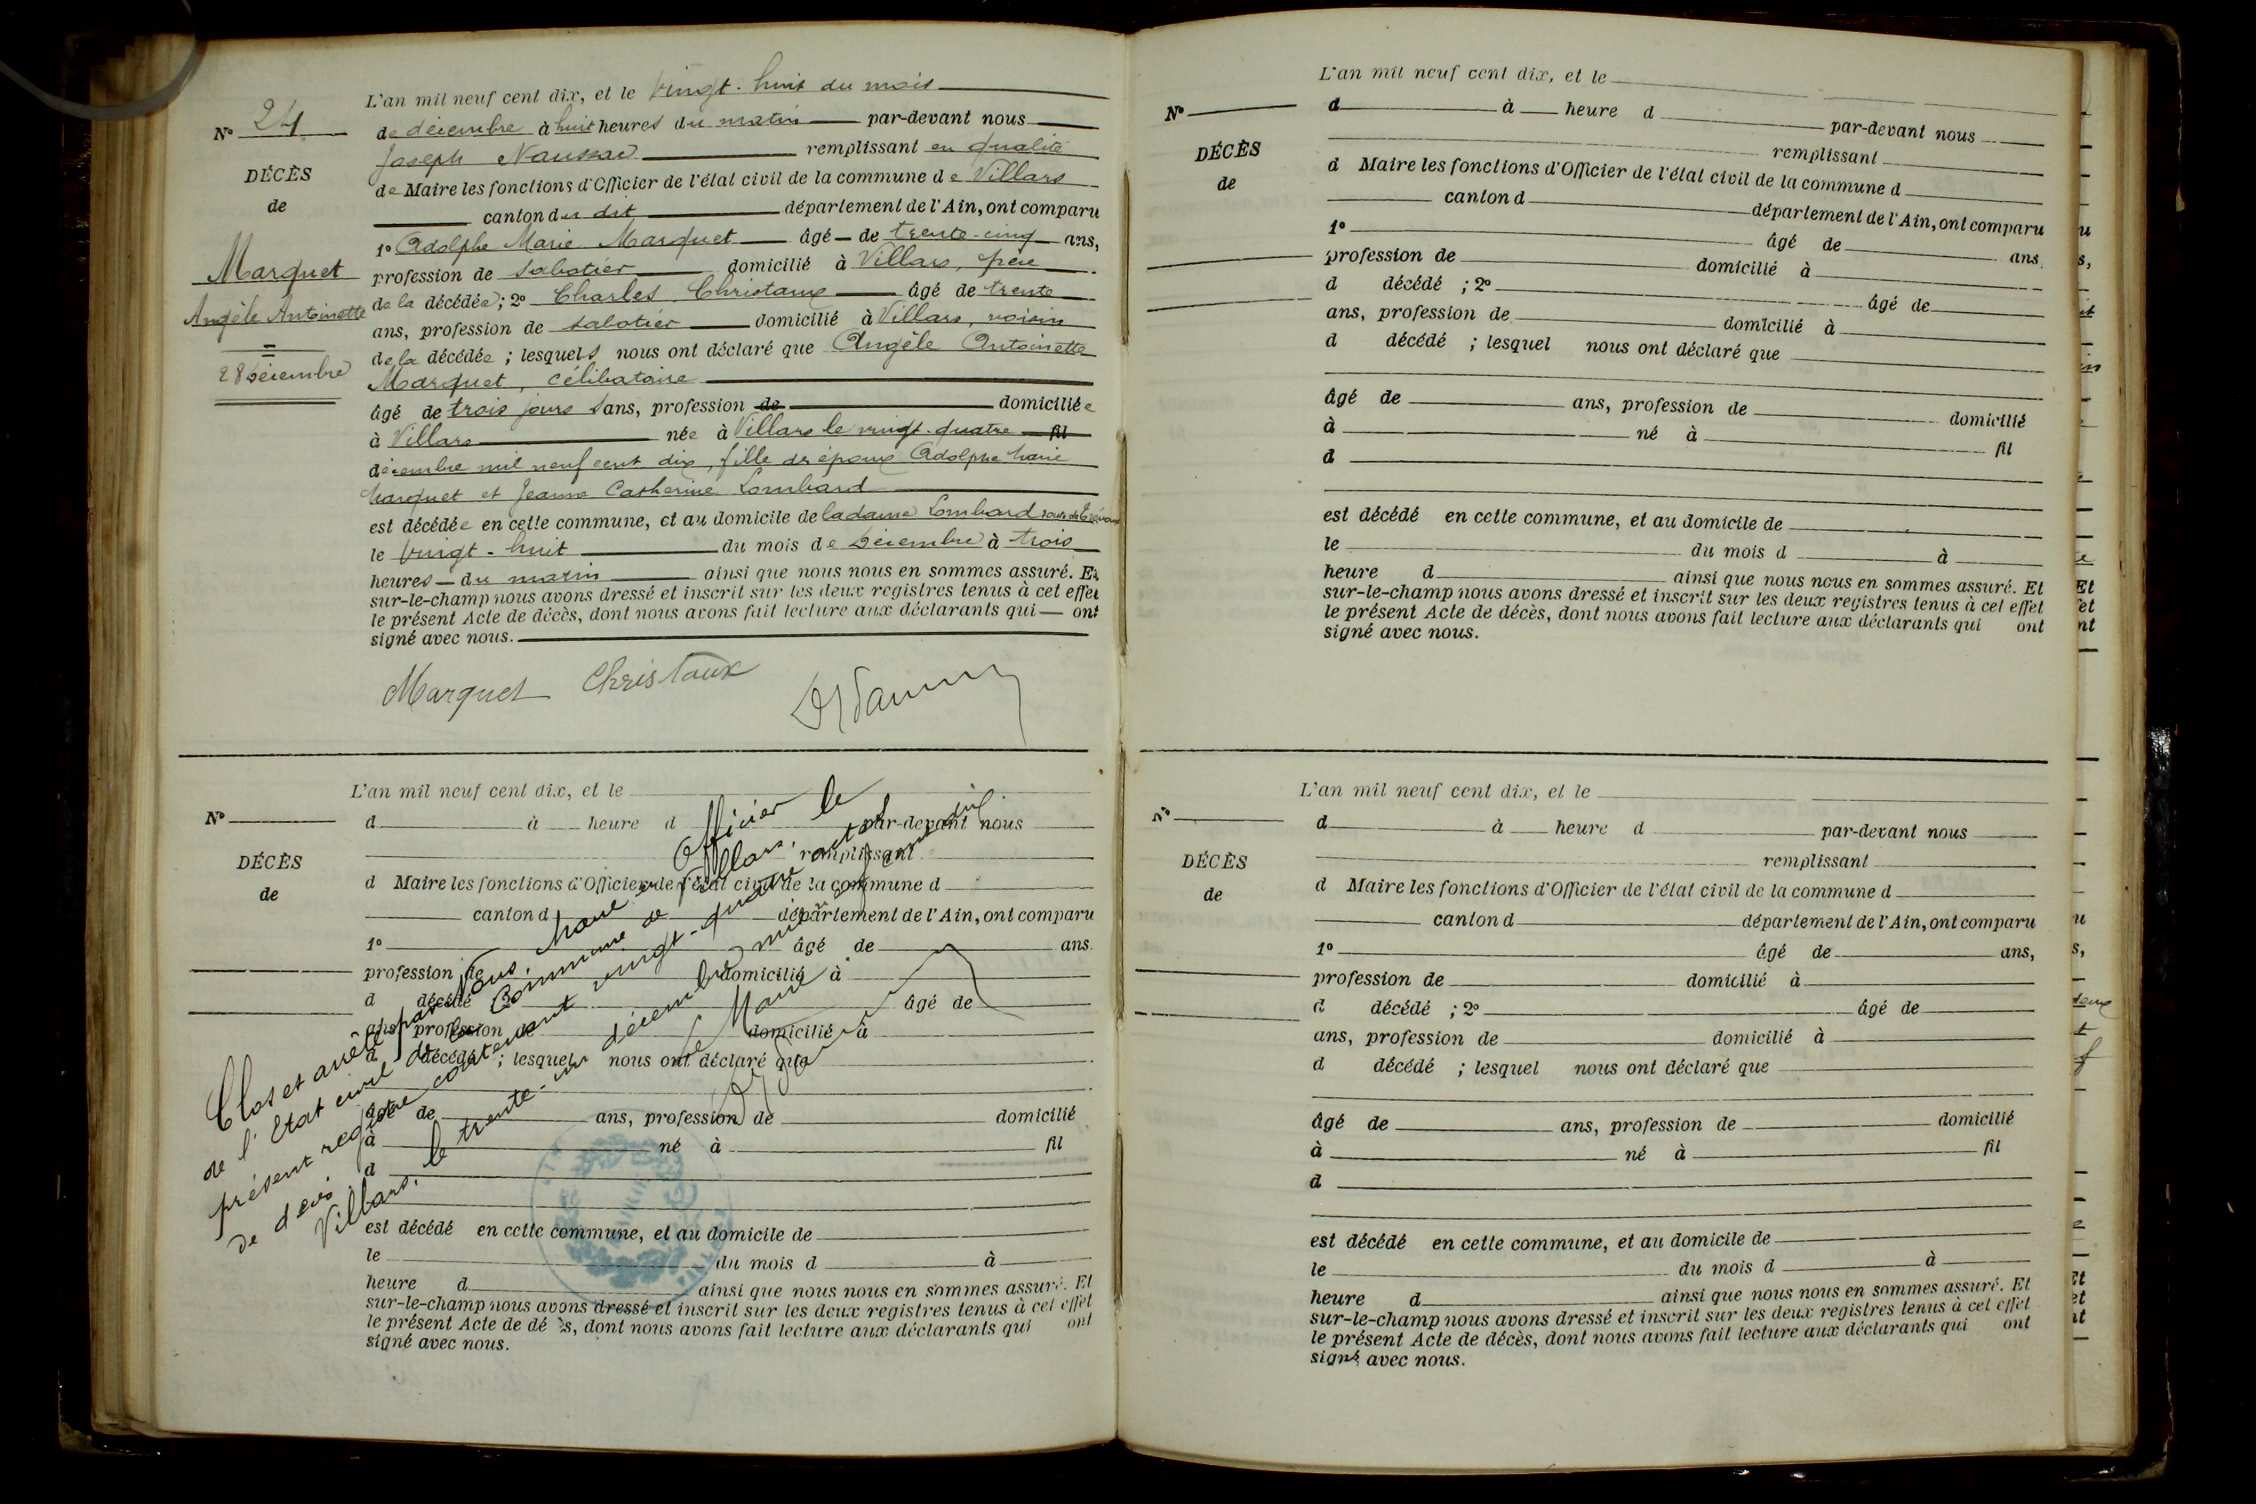 L'an mil neuf cent dix, et le vingt-huit du mois
N° 24
de décembre à huit heures du matin par-devant nous
Joseph remplissant en qualité
DÉCÈS
de Maire les fonctions d'Officier de l'état civil de la commune de Villars
de
canton du dit département de l'Ain, ont comparu
1° Adolphe Marie Marquet âgé de trente-cinq ans,
Marquet
profession de sabotier domicilié à Villars, père
Angèle Antoinette
de la décédée ; 2° Charles Christaux âgé de trente
ans, profession de sabotier domicilié à Villars, voisin
de la décédée ; lesquels nous ont déclaré que Angèle Antoinette
28 Décembre
Marquet, célibataire
âgé de trois jours ans, profession de domiciliée
à Villars née à Villars le vingt-quatre fil
décembre mil neuf cent dix, fille des époux Adolphe Marie
Marquet et Jeanne Catherine Lombard
est décédée en cette commune, et au domicile de la dame Lombard
le vingt-huit du mois de Décembre à trois
heures du matin ainsi que nous nous en sommes assuré. Et
sur-le-champ nous avons dressé et inscrit sur les deux registres tenus à cet effet
le présent Acte de décès, dont nous avons fait lecture aux déclarants qui ont
signé avec nous.
Marquet Christaux
L'an mil neuf cent dix, et le
N°
d à heure d par-devant nous
remplissant
DÉCÈS
d Maire les fonctions d'Officier de l'état civil de la commune d
de
canton d département de l'Ain, ont comparu
1° âgé de ans.
profession de domicilié à
d décédé ; 2° âgé de
ans, profession de domicilié à
d décédé ; lesquel nous ont déclaré que
âgé de ans, profession de domicilié
à né à fil
d
est décédé en cette commune, et au domicile de
le du mois d à
heure d ainsi que nous nous en sommes assuré. Et
sur-le-champ nous avons dressé et inscrit sur les deux registres tenus à cet effet
le présent Acte de décès, dont nous avons fait lecture aux déclarants qui ont
signé avec nous.
Clos et arrêté par Nous, Maire et Officier le
de l'Etat civil de la Commune de Villars,
présent registre contenant vingt-quatre actes
de décès
Villars, le trente-un décembre mil neuf cent dix
Le Maire
L'an mil neuf cent dix, et le
N°
d à heure d par-devant nous
remplissant
DÉCÈS
d Maire les fonctions d'Officier de l'état civil de la commune d
de
canton d département de l'Ain, ont comparu
1° âgé de ans.
profession de domicilié à
d décédé ; 2° âgé de
ans, profession de domicilié à
d décédé ; lesquel nous ont déclaré que
âgé de ans, profession de domicilié
à né à fil
d
est décédé en cette commune, et au domicile de
le du mois d à
heure d ainsi que nous nous en sommes assuré. Et
sur-le-champ nous avons dressé et inscrit sur les deux registres tenus à cet effet
le présent Acte de décès, dont nous avons fait lecture aux déclarants qui ont
signé avec nous.
L'an mil neuf cent dix, et le
N°
d à heure d par-devant nous
remplissant
DÉCÈS
d Maire les fonctions d'Officier de l'état civil de la commune d
de
canton d département de l'Ain, ont comparu
1° âgé de ans,
profession de domicilié à
d décédé ; 2° âgé de
ans, profession de domicilié à
d décédé ; lesquel nous ont déclaré que
âgé de ans, profession de domicilié
à né à fil
d
est décédé en cette commune, et au domicile de
le du mois d à
heure d ainsi que nous nous en sommes assuré. Et
sur-le-champ nous avons dressé et inscrit sur les deux registres tenus à cet effet
le présent Acte de décès, dont nous avons fait lecture aux déclarants qui ont
signé avec nous.